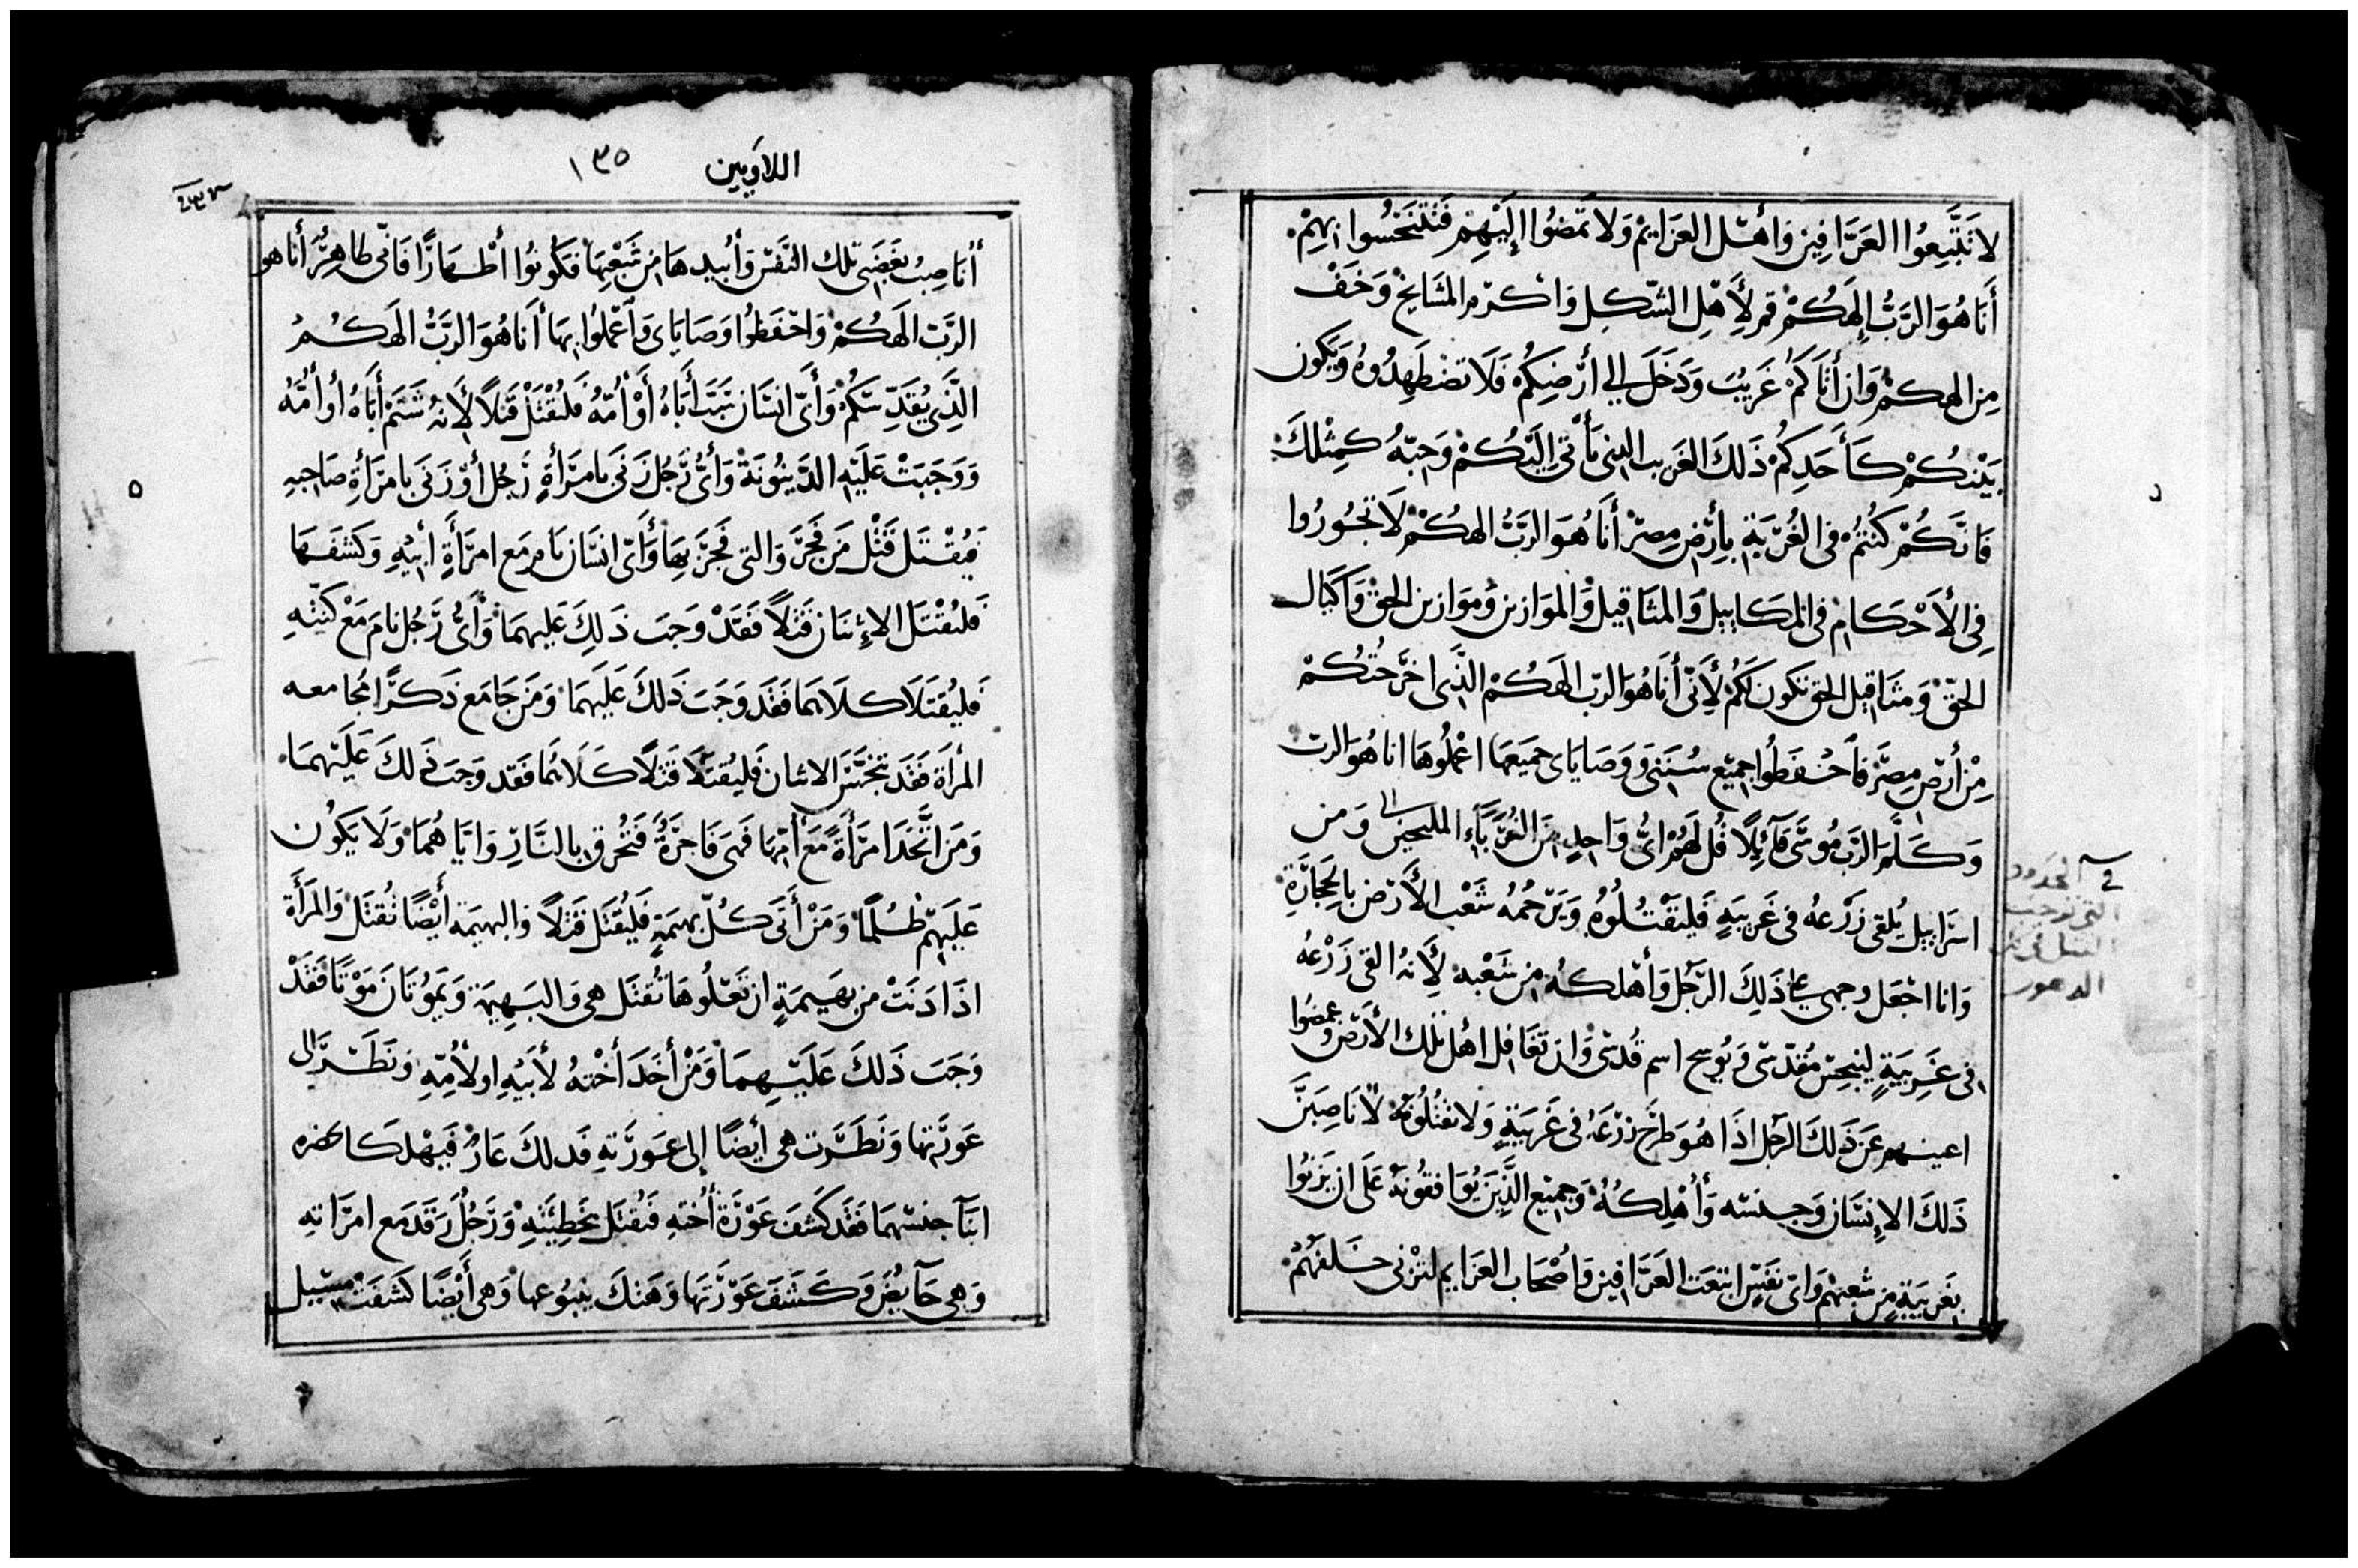 لا تَتَّبِعُوا العَرَّافِين وَأهْل العَزَايِم وَلا تَمضُوا إلَيْهِم فَتَتَنَجَّسُوا بِهِمْ
أَنَا هُوَ الرَّبُّ إلهَكُمْ قم لِأَهْلِ الشّكِل وَاكرّم المشَايخ وَخَفْ
مِن الهكمْ وَان أَتَاكمُ غَرِيبُ وَدَخَلَ إلي أرْضِكُم فَلَا تضْطَهِدُوهُ وَيَكون
بَيْنكُمْ كَأَحَدِكُمْ ذَلكَ الغَريب الذي يَأْتي إلَيْكُمْ وَحِبّهُ كمِثْلكَ
فَانَّكُمْ كُنتُمْ فى الغُرْبَةِ بِأَرْضِ مِصرْ أَنَا هُوَ الرَّبُّ الهكُمْ لَا تَجُورُوا
فِى الأَحْكَام فى المكَاييل وَالمثَاقيل وَالموَازين وَموَازين الحقْ وَاَكيَال
الحَقّ وَمثَاقيل الحق تكون لَكُمْ لِأَنّى أَنَا هُوَ الرّبّ الهَكُمْ الذَّى اخرَجْتُكُمْ
مِنْ أرْضِ مِصْرَ فَأحْفَظُوا جمِيْع سُنَننَى وَوَصَايَاى جَمِيَعهَا اعْملُوهَا انا هُوَ الرب
وَكَلَّمَ الرَّب مُوسَّى قآئِلًا قُل لَهُمْ ائُّ وَاحِدٍ مِنَ الغُرَبَاَءِ الملتجيين الى وَمن
اسرَاييل يُلقى زَرْعهُ فى غَريبَةٍ فَليقْتلُوهُ وَيَرْجُمُهُ شَعْب الأَرْض بِالحِجَارَةِ
وَانا اجْعَل وجهى على ذَلِكَ الرَّجُل وَأهْلكهُ مِن شَعْبه لِأَنهُ القى زَرْعهُ
فى غَرِيبَةٍ لينجّسْ مُقدّسّى وَيُوسخ اسم قُدسّى وَان تَغَافل اهْل تلك الأَرْض وَغمضُوا
اعينهم عَن ذَلكَ الرجل اذَا هُوَ طَرَحَ زرْعَهُ فى غَريَبةٍ وَلَا تقْتُلُوُنه لأنَا صبَنَّ
ذَلكَ الإِنسَان وَجنسّه وَأهْلِكهُ وَجمِيْع الذَّينَ يُوَافقُونهُ عَلَى ان يَزنوا
بغَرِيبَةٍ مِن شَعبهمْ وَاىّ نَفَسٍ اتبَعَت العَرَّافين وَاصْحَاب العَزَايم لتزنى خَلفهُمْ
في الحدود
التى توجب
القتل فى ذلك
الدهور
اللاويين
١٣٥
أنَا صِبُ بِغَضَبِى تلك النّفَسْ وَأُبيدهَا مِن شَعْبِهَا فَكُونُوا أطْهَارًا فَانّى طَاهِرٌ أنَا هو
الرَّبّ الَهكُمْ وَاحْفَظُوا وَصَايَاى وَأعْمَلُوا بِهَا أَنَا هُوَ الرَّبُّ الَهكُمُ
الَّذِى يُقَدّسّكُمْ وَأَىّ انسَان سَبّ أَبَاهُ أَوْ أُمّهُ فَليُقْتَلْ قَتلًا لأَنهُ شَتَمَ أَبَاهُ أو أُمّهُ
وَوَجَبَتْ عَلَيْهِ الدّينُونَةْ وَأَىُّ رَجُل زَنَى بامرَأَةٍ رَجُل أوْ زَنَى بامرَأَةِ صَاحِبهِ
فيُقْتَل قَتْل مَن فَجَرَ وَالتى فَجَرَ بِهَا وَأَىّ انسَان نَامَ مَع امرَأَةِ أبيْهِ وَكَشفَهَا
فليُقْتَل الإِثنَان قَتْلاً فَقَدْ وَجَبَ ذَلِكَ عَليهمَا وَأىُّ رَجُل نامَ مَعْ كنّتِهِ
فَليُقتَلَا كلَاهمَا فَقَد وَجَبَ ذَلكَ عَليهمَا وَمَن جَامَع ذَكرًا مُجَامعه
المرأة فَقد تنجَّسَ الاثنان فَليُقتَلا قَتلًا كَلَاهُمَا فَقد وَجَبَ ذَلكَ عَلَيْهمَا
وَمَن اتَّخَذ امرَأَةً مَعَ أُمّهَا فَهَى فَاجرَةٌ فَتُحرق بالنَّارِ وَايَاهُمَا وَلَا يَكُون
عَلَيهِم ظُلمًا وَمَنْ أَتَى كُلّ بهيمَةٍ فَليُقتَل قَتلاً وَالبهيمَه أيْضًا تُقتَل وَالمرَأَة
اذَا دَنَتْ من بهَيمَةٍ ان تعْلُوهَا تُقتَل هى وَالبَهيمَة وَيَمُوتَانَ مَوْتًا فَقَدْ
وَجَبَ ذَلكَ عَلَيْهمَا وَمَنْ أَخَذَ أخْتهُ لأَبيْهِ اولأُمّهِ وَنَظَرَ الى
عَورَتهَا وَنَظَرَت هى أيضًا إلى عَورَتهِ فَدلكَ عَارٌ فَيَهْلكَا بحضرة
ابنَآ جنسهمَا فقَد كَشفَ عَوْرَة أُختهِ فَيُقتَل بخَطِيئتهِ وَرَجُلٌ رَقدَ مَع امرَاتهِ
وَهِى حَآيُض وَكَشَفَ عَوْرَتهَا وَهَتكَ ينبُوعهَا وَهى أَيْضًا كَشفَتْ مسَيل
٥